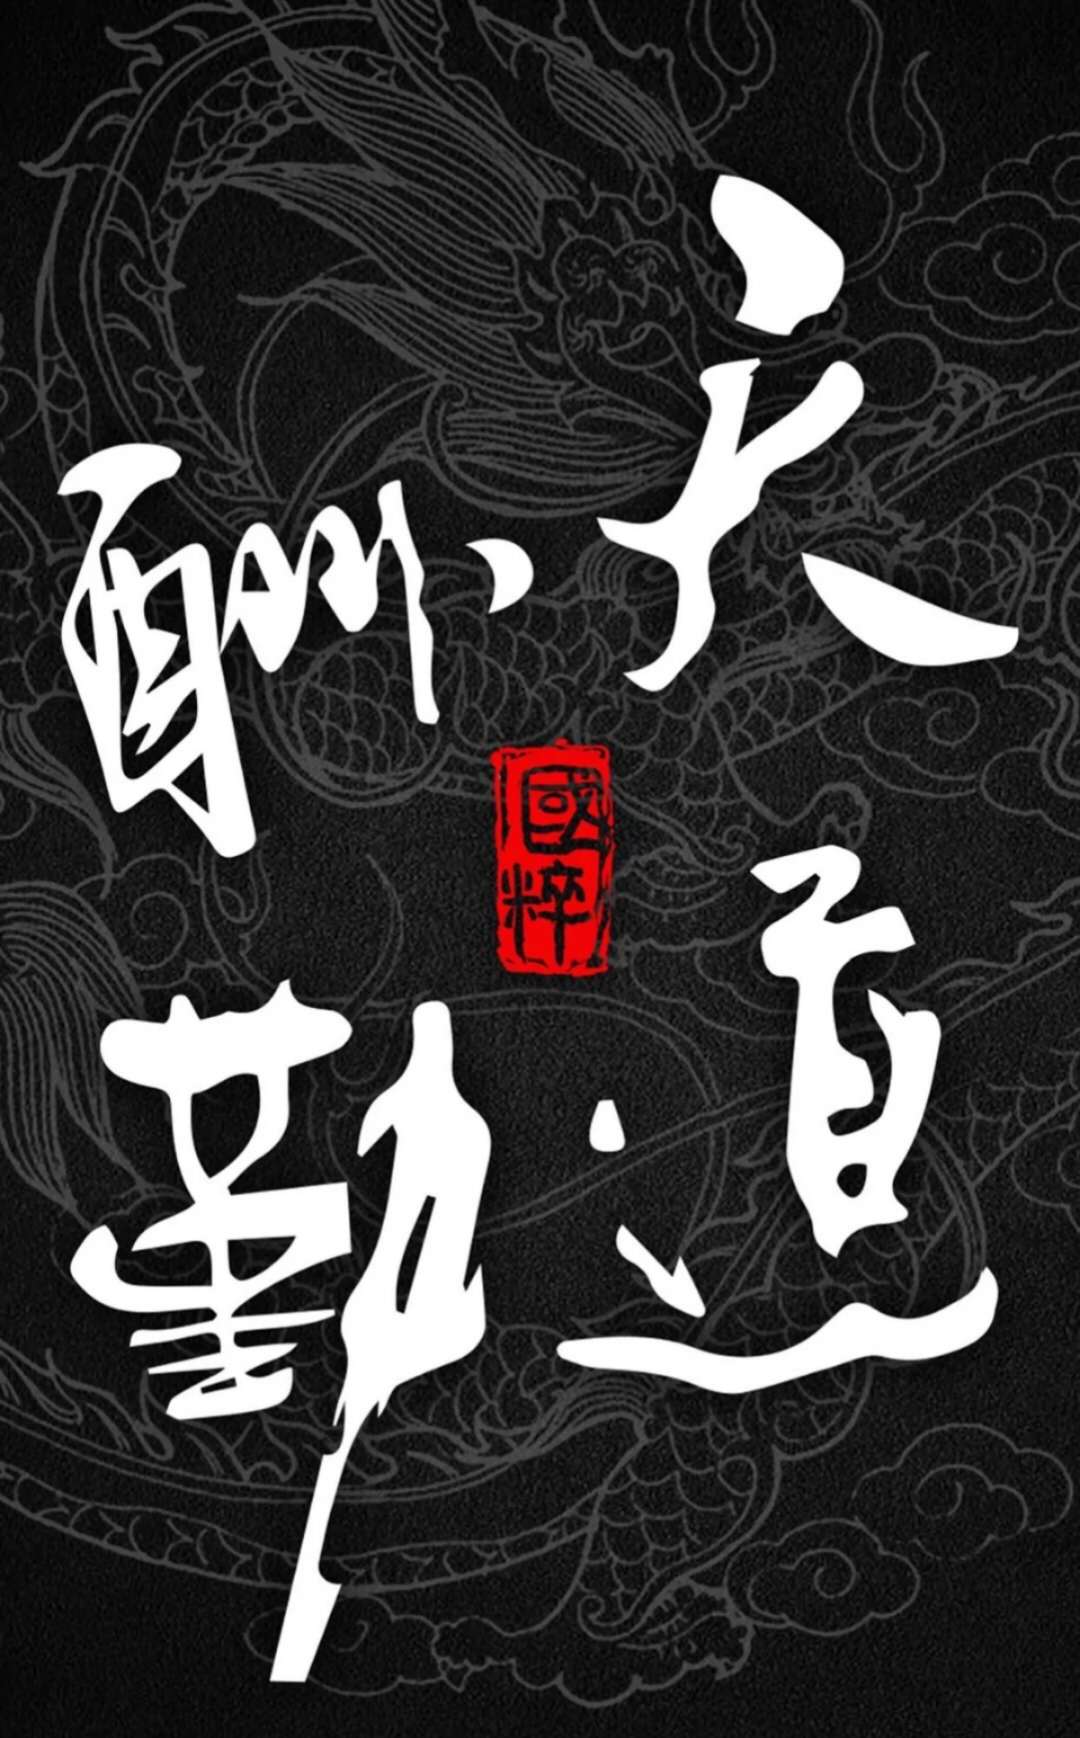 天道
酬勤
國粹